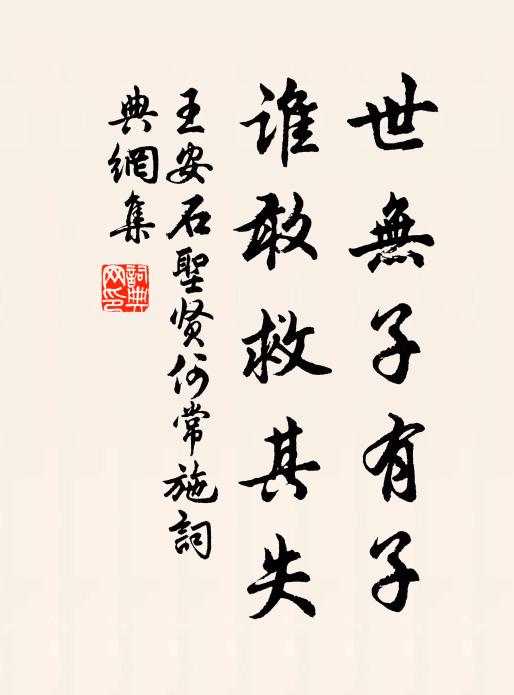 世無子有子
誰敢救其失
王安石聖贤何常施詞
典網集
詞典
网印